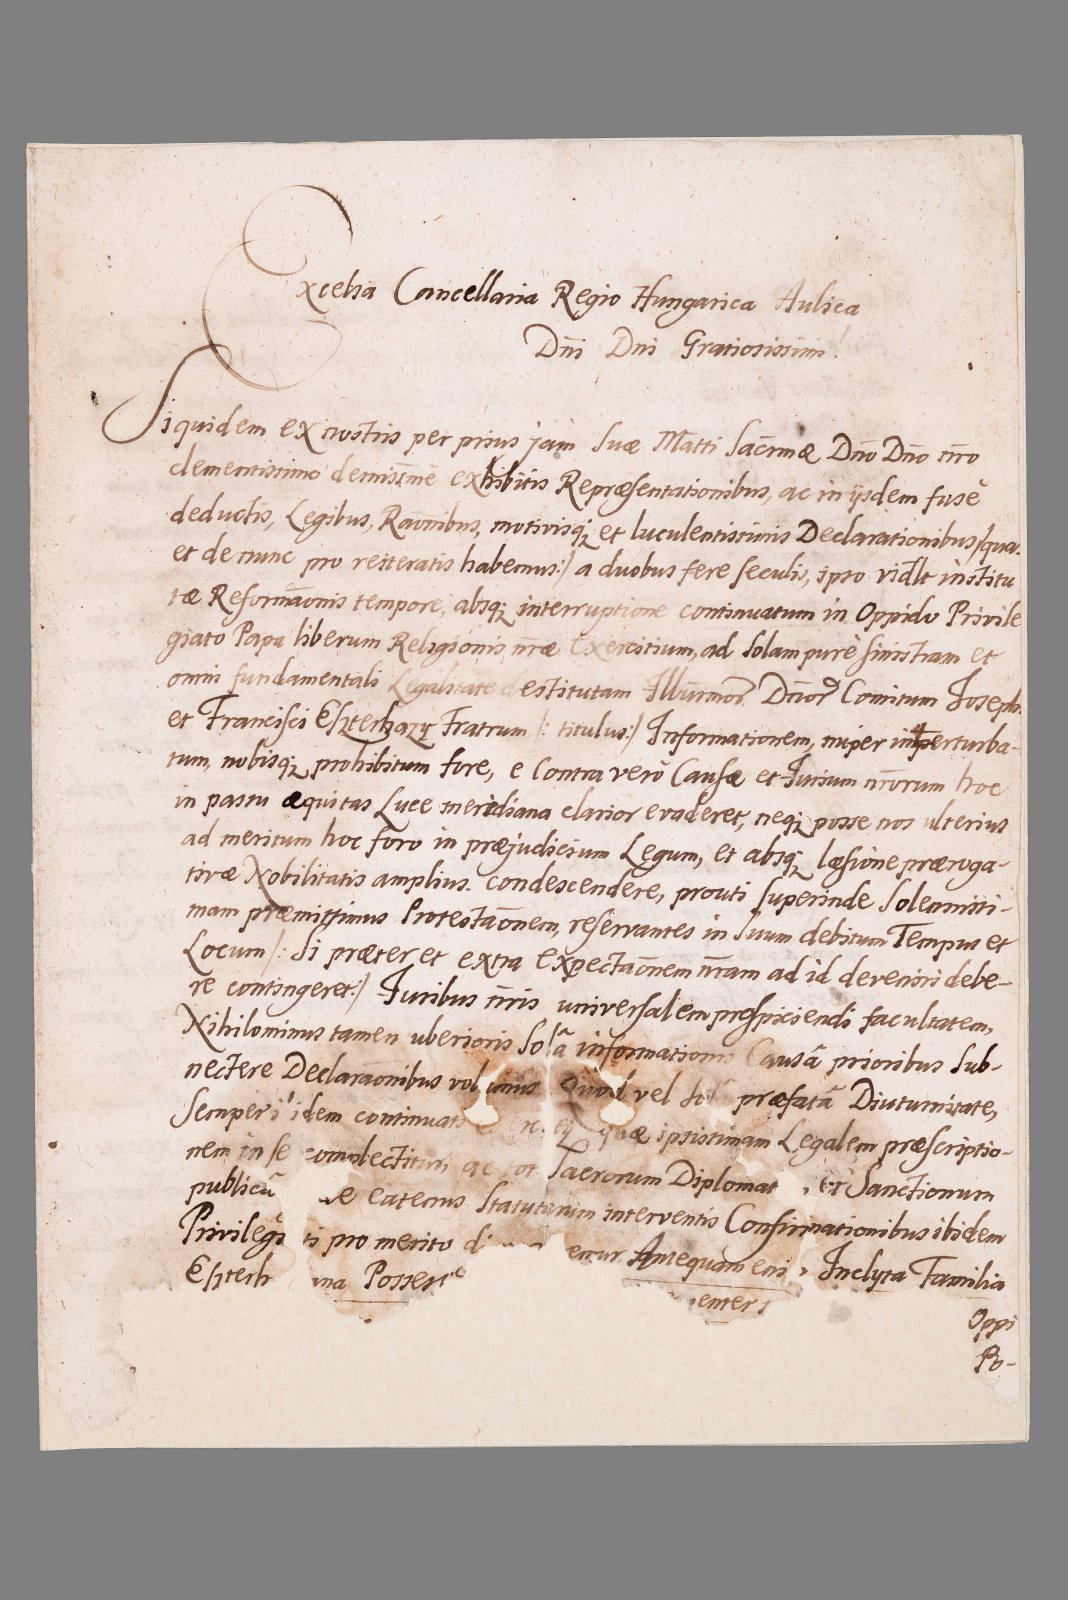 Excelsa Cancellaria Regio Hungarica Aulica
Dn̄i Dni Gratiosissimi!
Siquidem ex nostris per prius jam Suæ Matti Sacr̄mæ Dn̄o Dn̄o n̄ro
clementissimo demissm̄è exhibitis Repræsentationibus, ac in ijsdem fusè
deductis, Legibus, Rao̅nibus, motivisq; et luculentissimis Declarationibus /:quas
et de nunc pro reiteratis habemus:/ a duobus fere seculis, ipso vidl̅t institu
tæ Reforma̅o̅nis tempore, absq; interruptione continuatum in Oppido Privile
giato Papa liberum Religionis n̄ræ Exercitium, ad solam purè sinistram et
omni fundamentali Legalitate destitutam Illu̅rmor̅ Dn̅or̅ Comitum Josephi
et Francisci Eszterhazy Fratrum /: titulus:/ Informationem, nuper imperturba-
tum, nobisq; prohibitum fore, e contra verò Causæ et Jurium nr̄orum hoc
in passu æquitas Luce meridiana clarior evaderet, neq; posse nos ulterius
ad meritum hoc foro in præjudicium Legum, et absq; læsione præroga-
tivæ Nobilitatis amplius condescendere, prouti superinde Solennissi-
mam præmittimus Protestao̅nem, reservantes in suum debitum Tempus et
Locum /: Si præter et extra Expectao̅nem n̄ram ad id deveniri debe-
re contingeret:/ Juribus n̄ris universalem prospiciendi facultatem,
Nihilominus tamen uberioris solâ informationis Causâ prioribus sub-
nectere Declarao̅nibus volumus Quod vel præfatâ Diuturnitate,
semper ibidem continuat quæ ipsissimam Legalem præscriptio-
nem in se complectitur, ac tot Sacrorum Diplomat et Sanctionum
publica eatenus Statutarum interventis Confirmationibus ibidem
Privilegi ti pro merito entur Antequam eni Inclyta Familia
Eszterh na Possess
enter
Oppi
Po-